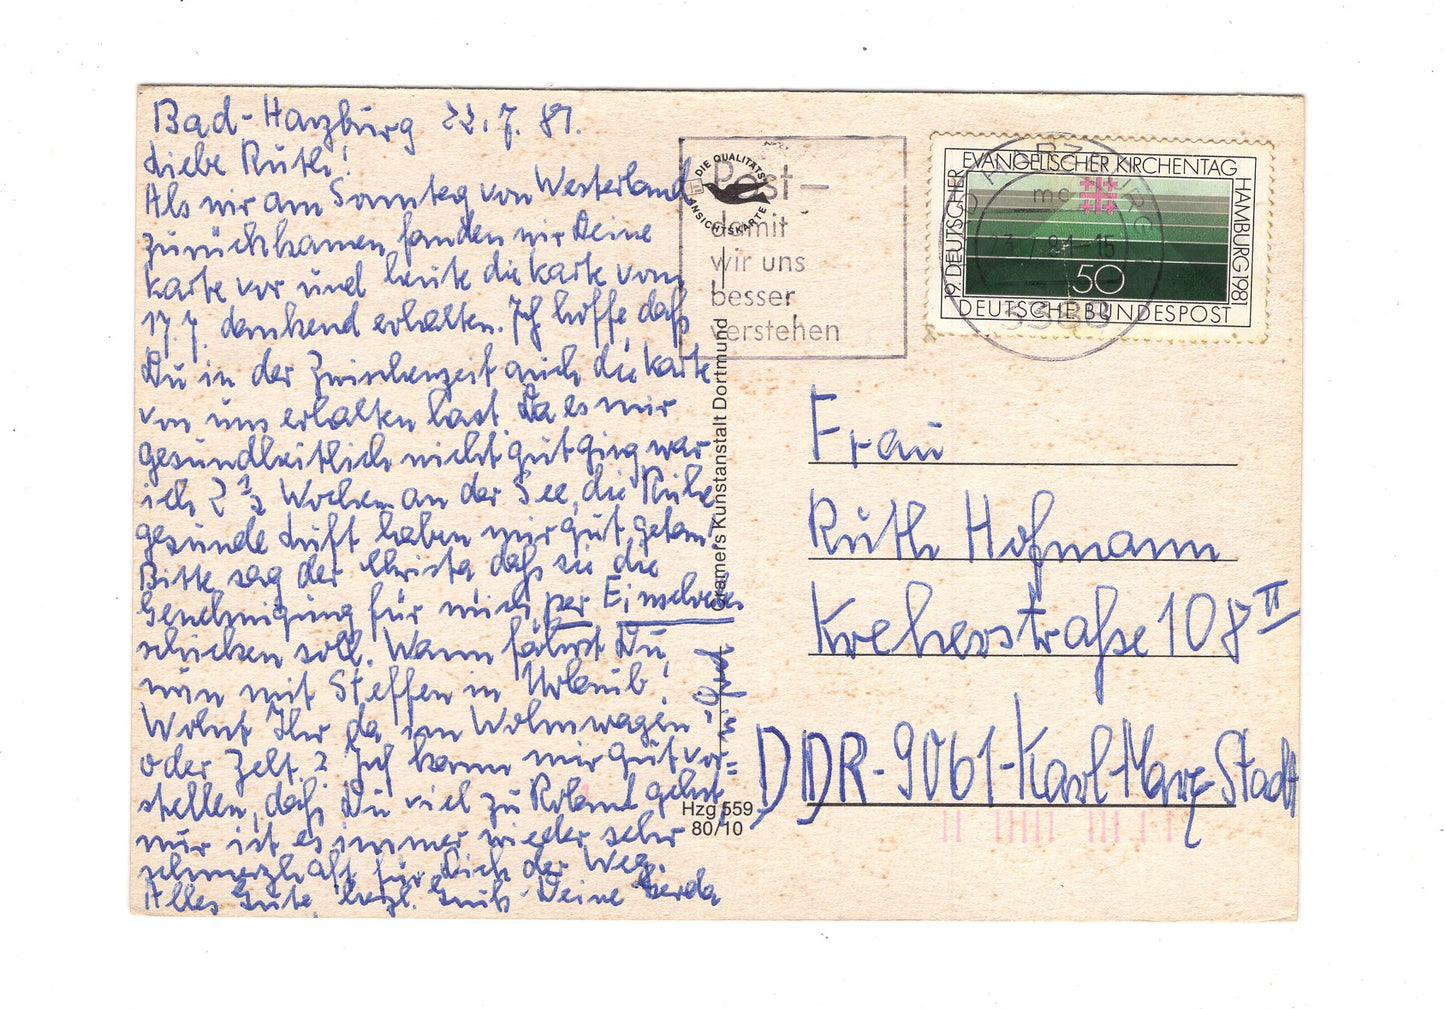 Bad-Harzburg 22.7.81.
Liebe Ruth!
Als wir am Sonntag von Westerland
zurückkamen, fanden wir Deine
Karte vor und heute die Karte vom
17.7. dankend erhalten. Ich hoffe, daß
Du in der Zwischenzeit auch die Karte
von uns erhalten hast. Da es mir
gesundheitlich nicht gut ging war
ich 2 1/2 Wochen an der See, die Ruhe
gesunde Luft haben mir gut getan.
Bitte sag der Christa daß sie die
Genehmigung für mich per Einschreiben
schicken soll. Wann fährst Du
nun mit Steffen in Urlaub!
Wohnt Ihr da im Wohnwagen
oder Zelt? Ich kann mir gut vor=
stellen, daß Du viel zu Roland gehst,
nur ist es immer wieder sehr
schmerzhaft für Dich der Weg.
Alles Gute, herzl. Gruß Deine Gerda
DIE QUALITÄTS
ANSICHTSKARTE
Cramers Kunstanstalt Dortmund
Hzg 559
80/10
Post-
damit
wir uns
besser
verstehen
19. DEUTSCHER EVANGELISCHER KIRCHENTAG HAMBURG 1981
50
DEUTSCHE BUNDESPOST
Frau
Ruth Hofmann
Kreherstraße 108 II
DDR-9061-Karl-Marx-Stadt